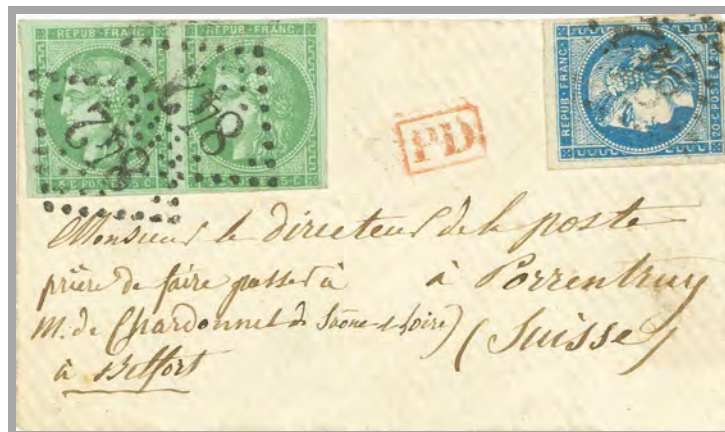 REPUB · FRANC ·
REPUB · FRANC ·
REPUB · FRANC ·
842
842
5 C POSTES 5 C
PD
Monsieur le directeur de la poste
prière de faire passer à
à Porrentruy
M. de Chardonnet de Saône & Loire)
(Suisse)
à Belfort